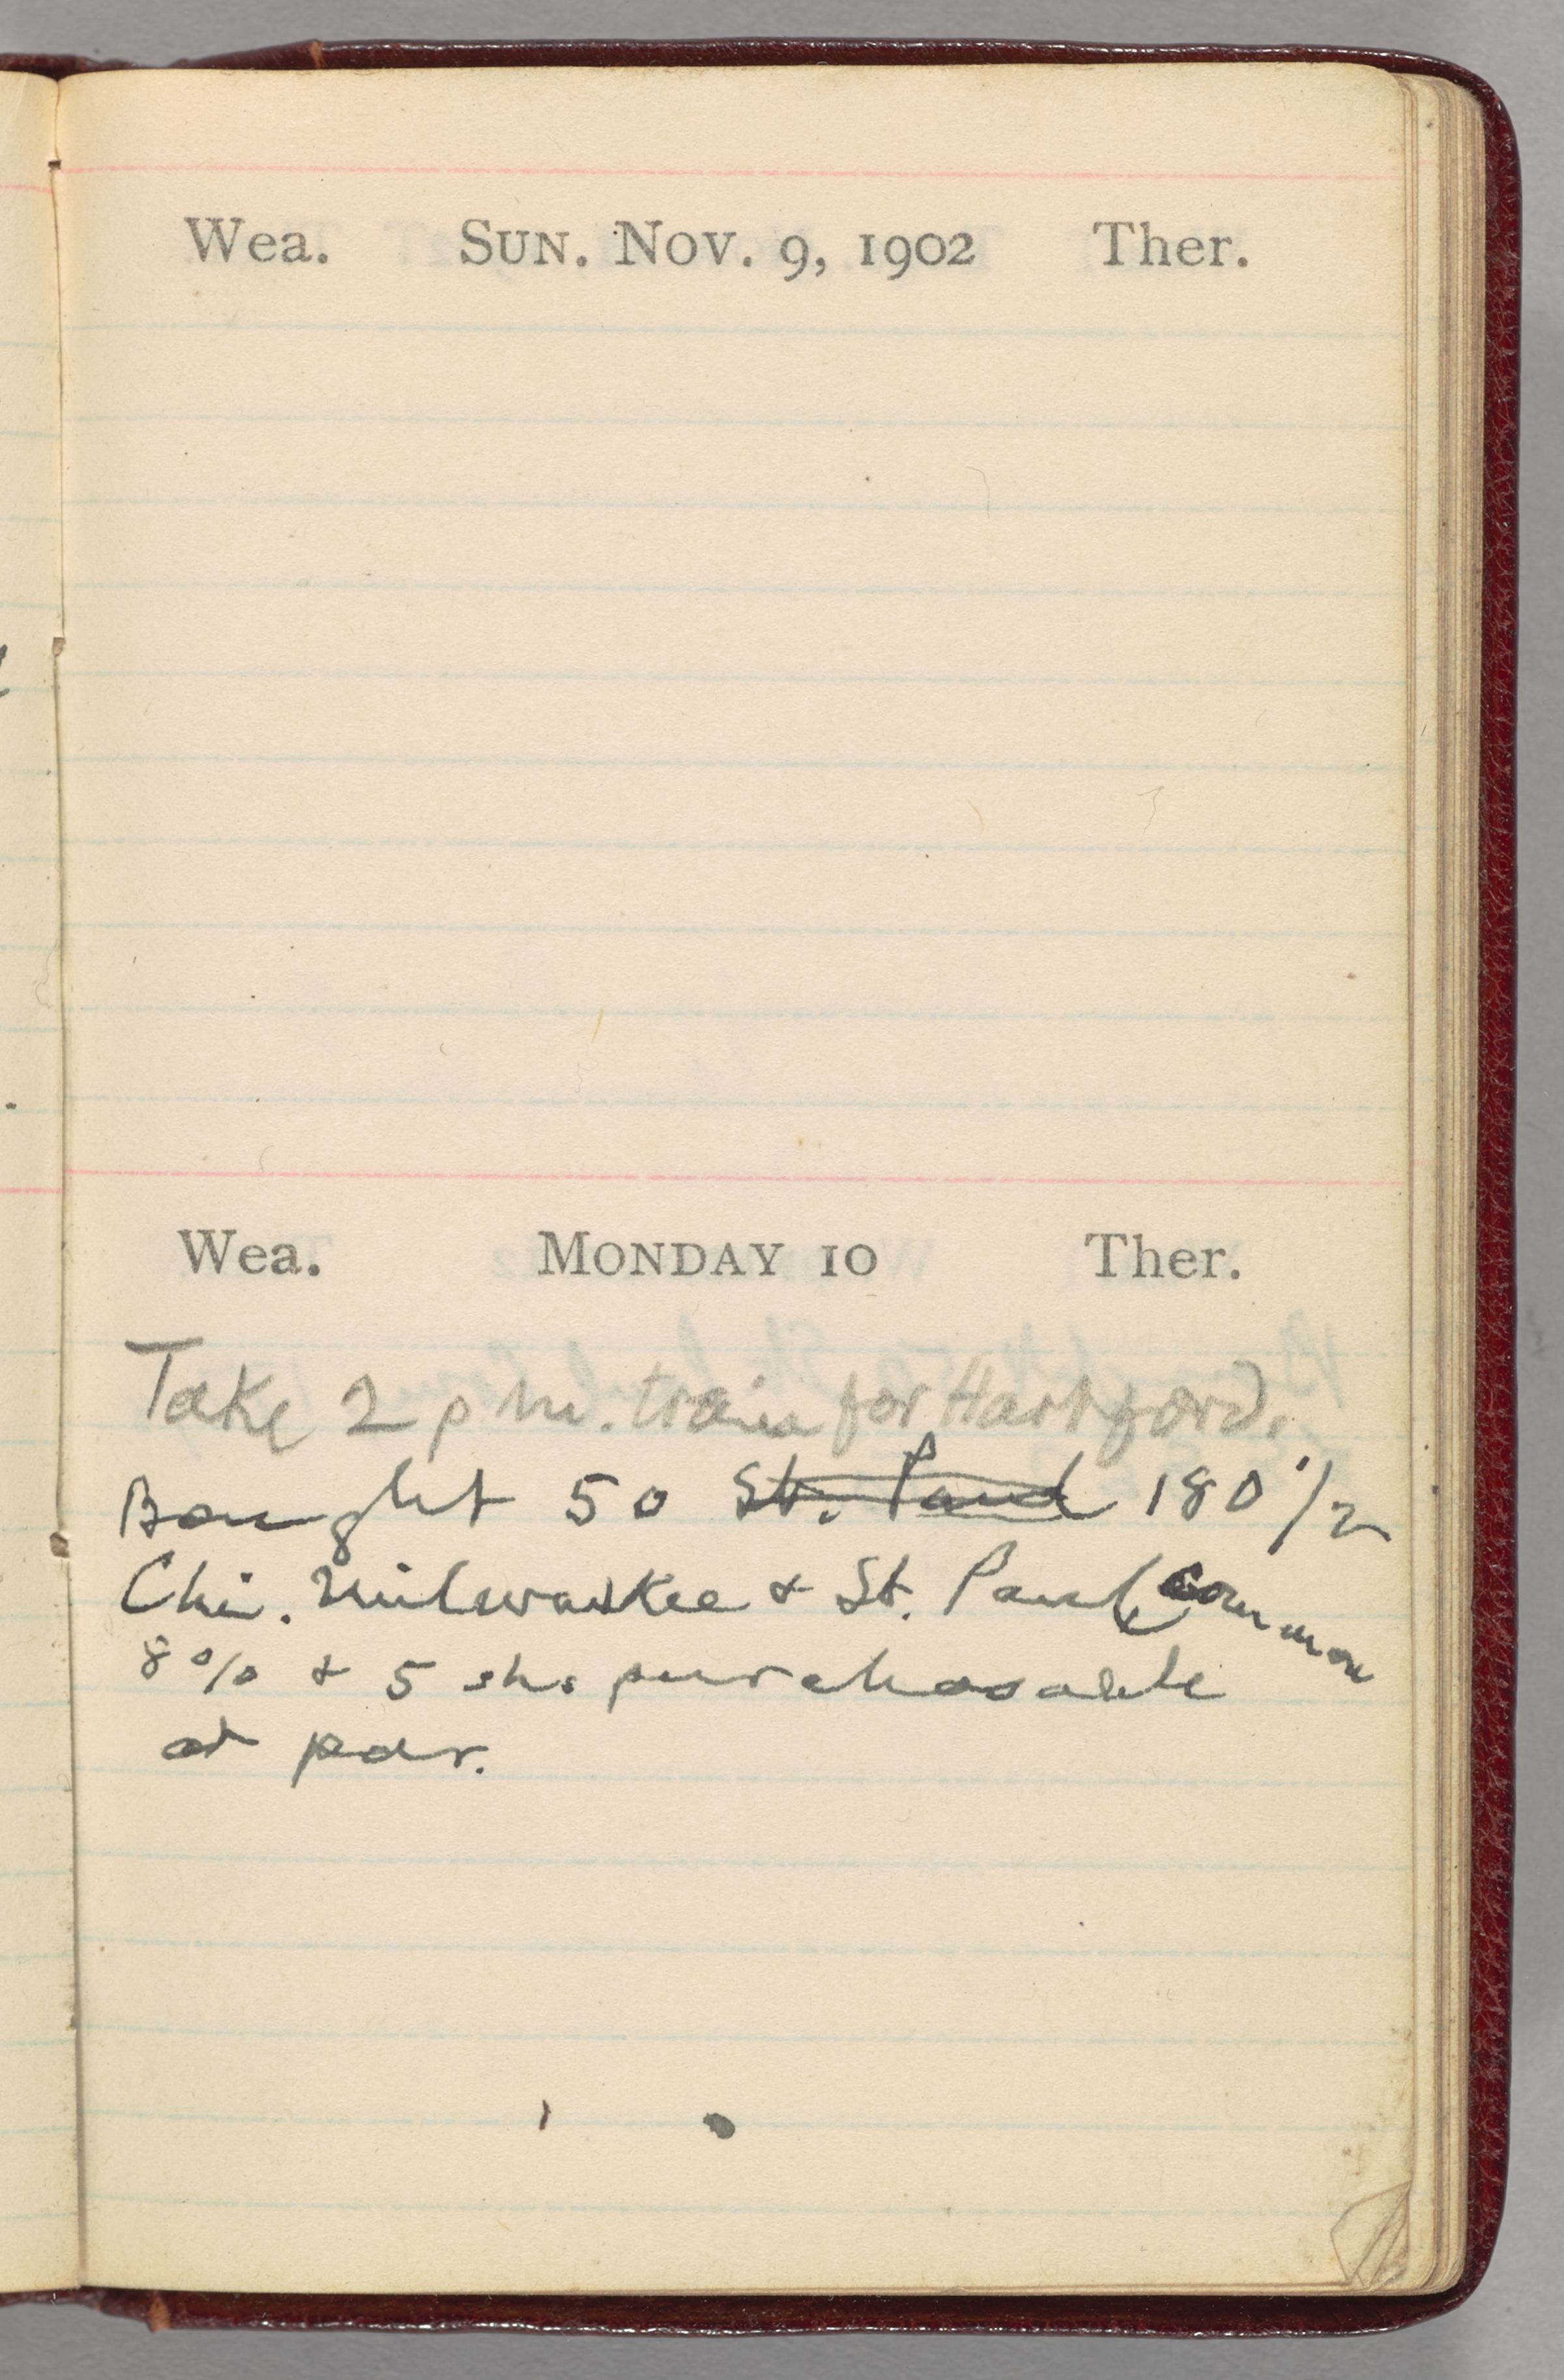 Wea. SUN. NOV. 9, 1902 Ther.
Wea. MONDAY 10 Ther.
Take 2 p m. train for Hartford.
Bought 50 St. Paul 180 1/2
Chi. Milwaukee & St. Paul, common
8% & 5 sh. purchasable
at par.